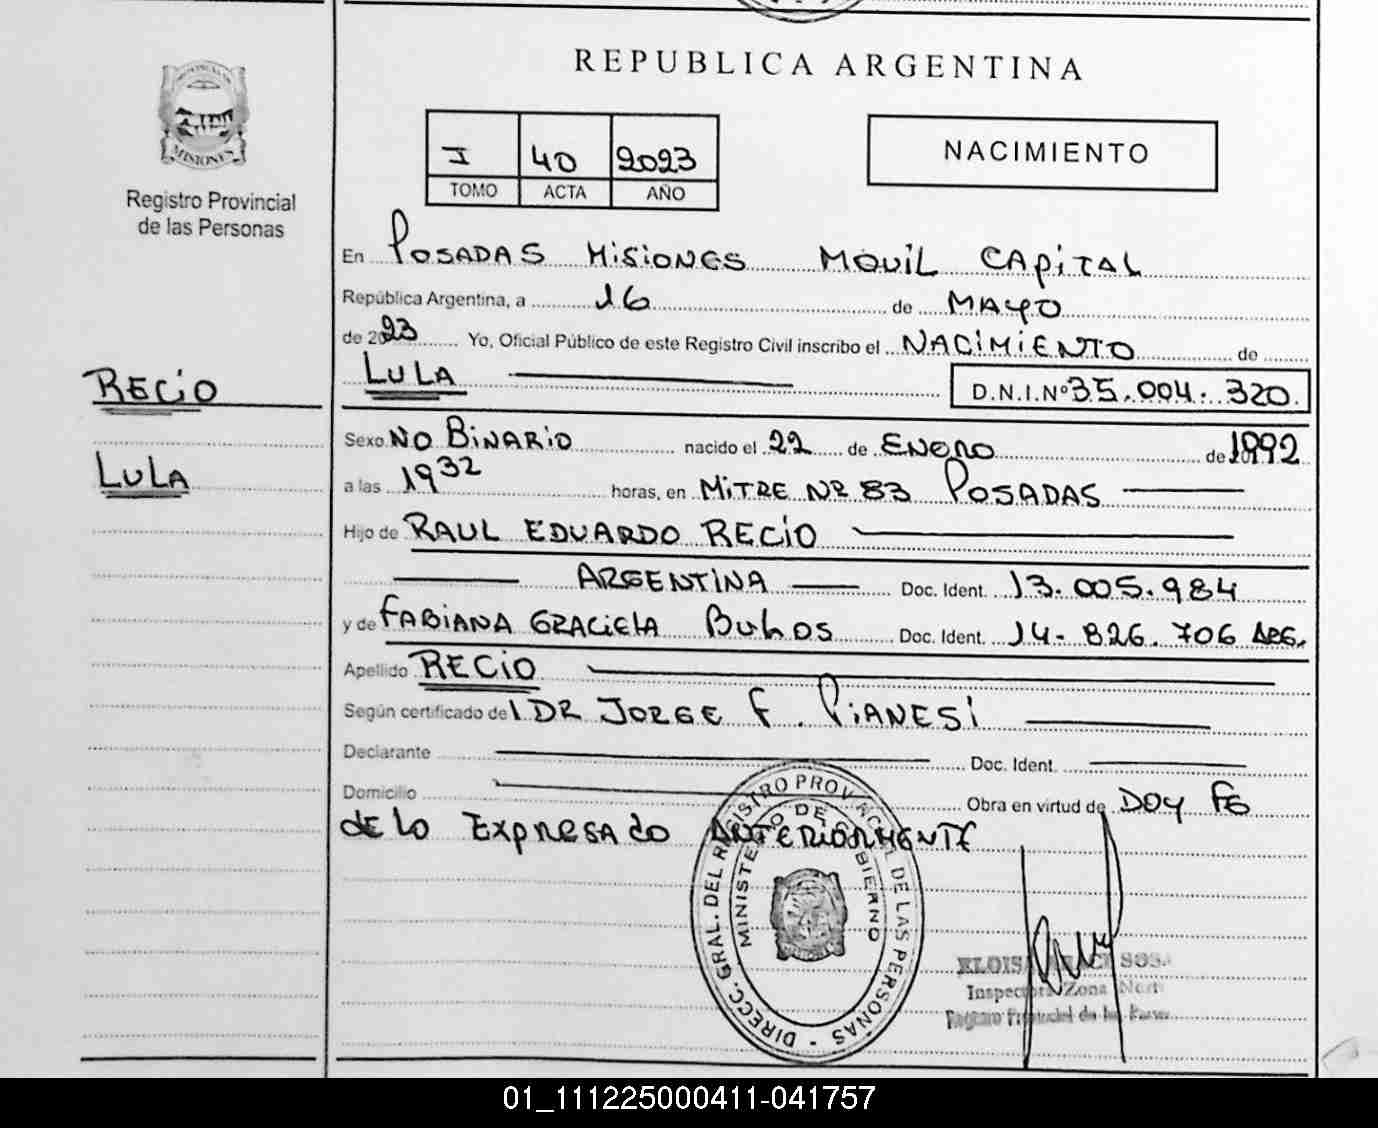 REPUBLICA ARGENTINA
MISIONES
Registro Provincial
de las Personas
I 40 2023
TOMO ACTA AÑO
NACIMIENTO
En POSADAS MISIONES MOVIL CAPITAL
República Argentina, a 16 de MAYO
de 2023 Yo, Oficial Público de este Registro Civil inscribo el NACIMIENTO de
RECIO
LULA
LULA D.N.I.Nº 35.004.320
Sexo NO BINARIO nacido el 22 de ENERO de 1992
a las 19 32 horas, en MITRE NR 83 POSADAS
Hijo de RAUL EDUARDO RECIO
ARGENTINA Doc. Ident. 13.005.984
y de FABIANA GRACIELA Doc. Ident. 14-826.706 ARG.
Apellido RECIO
Según certificado de DR JORGE F. PIANESI
Declarante Doc. Ident.
Domicilio Obra en virtud de DOY FE
de lo EXPRESADO ANTERIORMENTE
DIRECC. GRAL. DEL REGISTRO PROVINCIAL DE LAS PERSONAS -
MINISTERIO DE GOBIERNO
SOSA
Inspectora Zona Norte
01_111225000411-041757